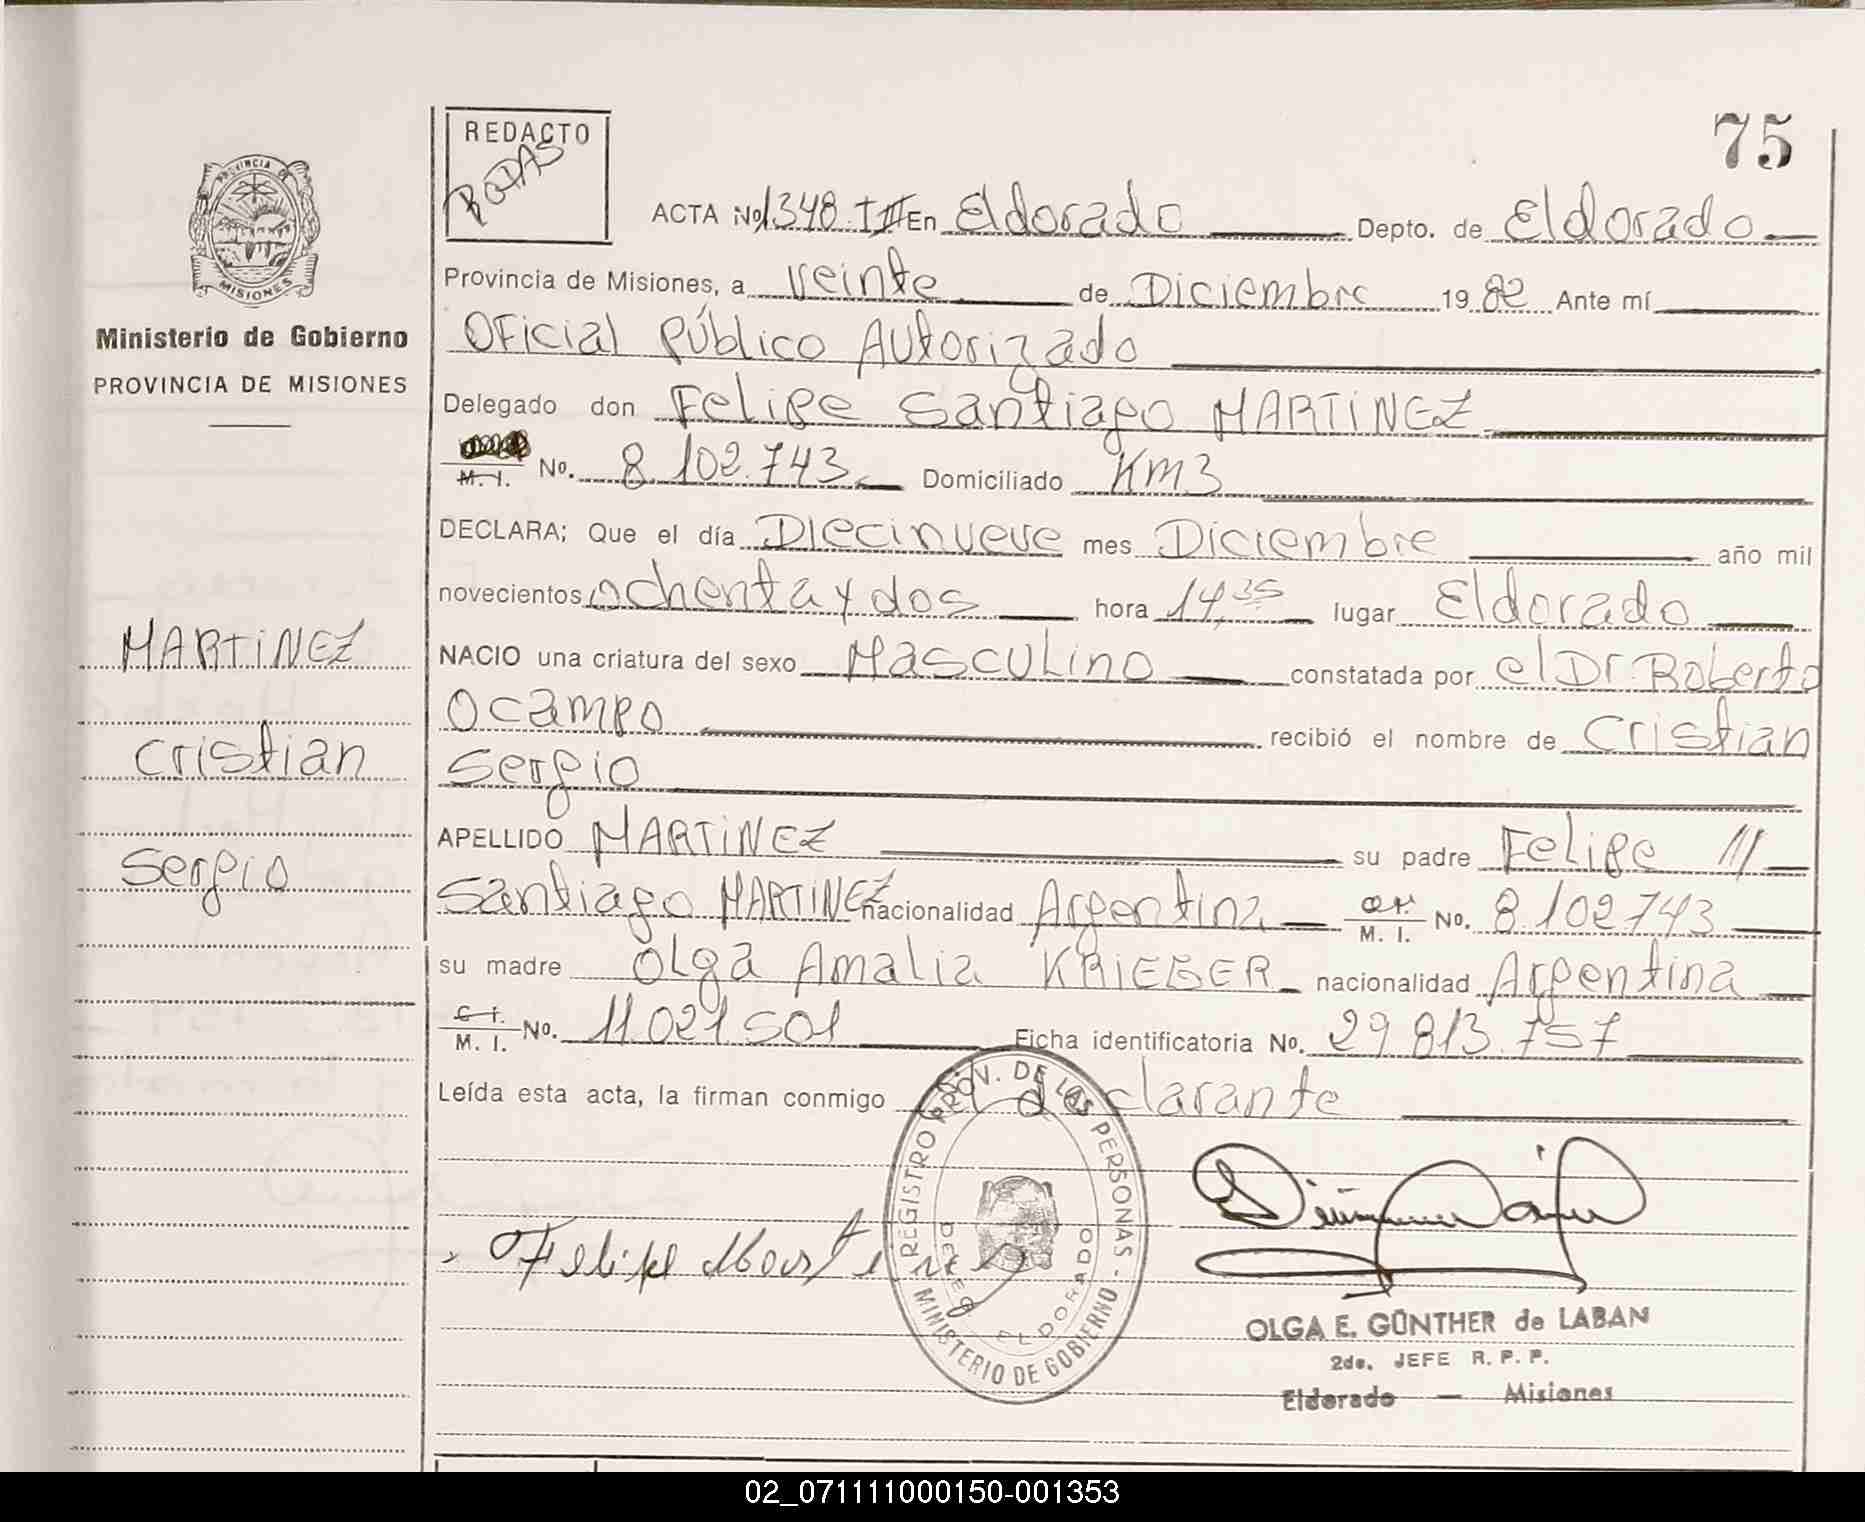 75
REDACTO
RODAS
PROVINCIA DE
MISIONES
Ministerio de Gobierno
PROVINCIA DE MISIONES
ACTA No 1348 TIII En Eldorado Depto. de Eldorado
Provincia de Misiones, a veinte de Diciembre 1982 Ante mí
Oficial Público Autorizado
Delegado don Felipe Santiago MARTINEZ
M. I. No. 8.102.743 Domiciliado Km3
DECLARA; Que el día Diecinueve mes Diciembre año mil
novecientos ochenta y dos hora 14,35 lugar Eldorado
NACIO una criatura del sexo Masculino constatada por el Dr Roberto
Ocampo recibió el nombre de Cristian
Sergio
APELLIDO MARTINEZ su padre Felipe ///
Santiago MARTINEZ nacionalidad Argentina M. I. No. 8.102.743
su madre Olga Amalia KRIEGER nacionalidad Argentina
C. I. M. I. No. 11.021.501 Ficha identificatoria No. 29.813.757
Leída esta acta, la firman conmigo el declarante
MARTINEZ
Cristian
Sergio
Felipe Martinez
REGISTRO PROV. DE LAS PERSONAS - MINISTERIO DE GOBIERNO
ELDORADO
OLGA E. GÜNTHER de LABAN
2do. JEFE R. P. P.
Eldorado — Misiones
02_071111000150-001353